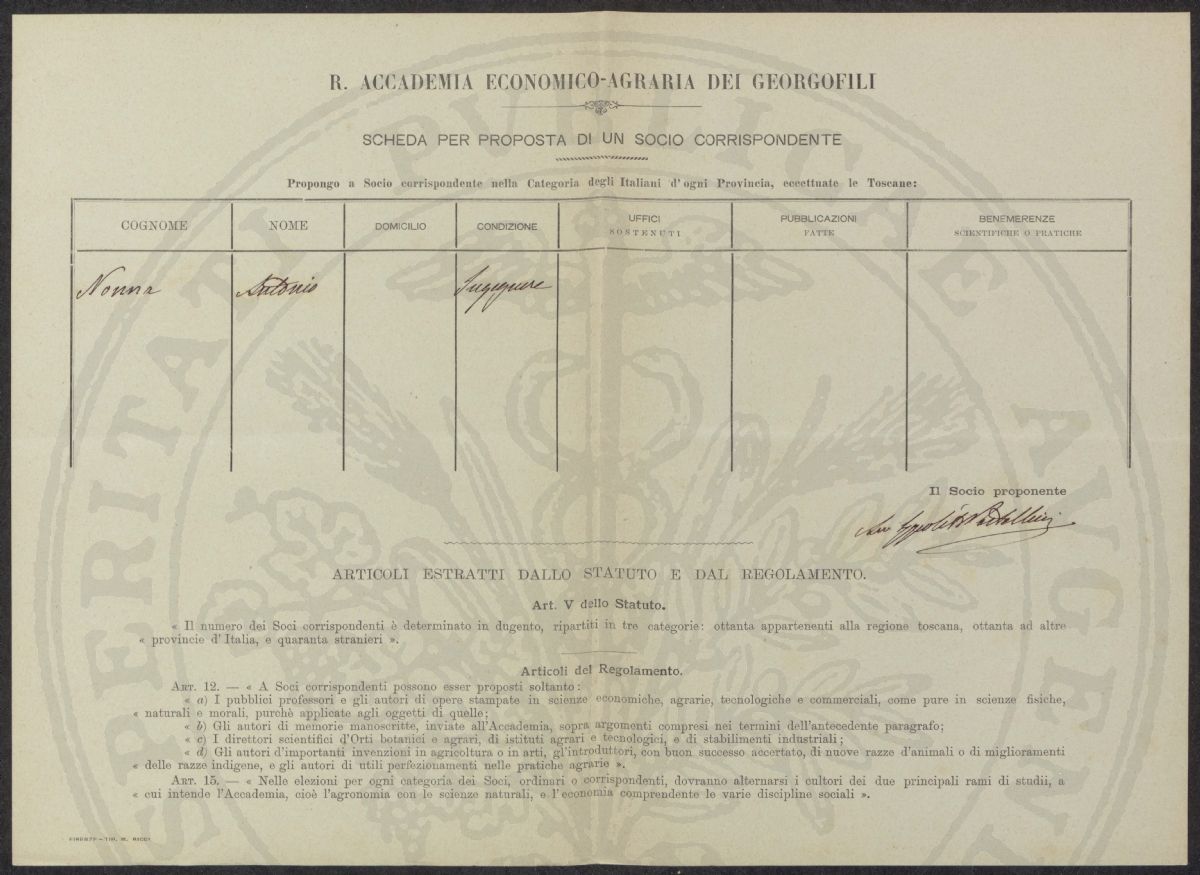 R. ACCADEMIA ECONOMICO-AGRARIA DEI GEORGOFILI
SCHEDA PER PROPOSTA DI UN SOCIO CORRISPONDENTE
Propongo a Socio corrispondente nella Categoria degli Italiani d'ogni Provincia, eccettuate le Toscane:
COGNOME NOME DOMICILIO CONDIZIONE UFFICI SOSTENUTI PUBBLICAZIONI FATTE BENEMERENZE SCIENTIFICHE O PRATICHE
Nonna Antonio Ingegnere
Il Socio proponente
Ippolito
ARTICOLI ESTRATTI DALLO STATUTO E DAL REGOLAMENTO.
Art. V dello Statuto.
« Il numero dei Soci corrispondenti è determinato in dugento, ripartiti in tre categorie: ottanta appartenenti alla regione toscana, ottanta ad altre
« provincie d'Italia, e quaranta stranieri ».
Articoli del Regolamento.
ART. 12. — « A Soci corrispondenti possono esser proposti soltanto:
« a) I pubblici professori e gli autori di opere stampate in scienze economiche, agrarie, tecnologiche e commerciali, come pure in scienze fisiche,
« naturali e morali, purchè applicate agli oggetti di quelle;
« b) Gli autori di memorie manoscritte, inviate all'Accademia, sopra argomenti compresi nei termini dell'antecedente paragrafo;
« c) I direttori scientifici d'Orti botanici e agrari, di istituti agrari e tecnologici, e di stabilimenti industriali;
« d) Gli autori d'importanti invenzioni in agricoltura o in arti, gl'introduttori, con buon successo accertato, di nuove razze d'animali o di miglioramenti
« delle razze indigene, e gli autori di utili perfezionamenti nelle pratiche agrarie ».
ART. 15. — « Nelle elezioni per ogni categoria dei Soci, ordinari o corrispondenti, dovranno alternarsi i cultori dei due principali rami di studii, a
« cui intende l'Accademia, cioè l'agronomia con le scienze naturali, e l'economia comprendente le varie discipline sociali ».
FIRENZE - TIP. M. RICCI
PROSPERITATI PVBLICAE AVGENDAE